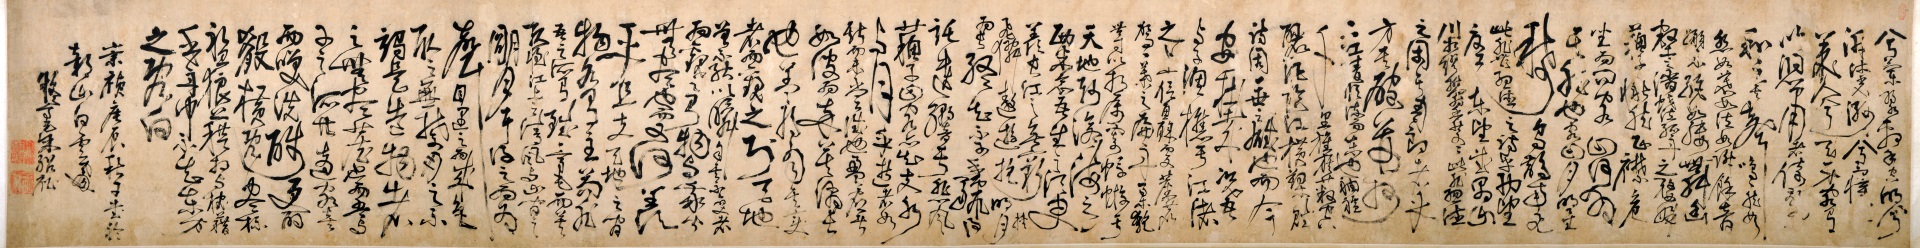 兮蘭槳擊空明兮
泝流光渺渺兮予懷
望美人兮天一方客有
吹洞簫者倚歌而
和之其聲嗚嗚然如
怨如慕如泣如訴餘音
嫋嫋不絕如縷舞幽
壑之潛蛟泣孤舟之嫠婦
蘇子愀然正襟危
坐而問客曰何為
其然也客曰月明星
稀烏鵲南飛
此非曹孟德之詩乎西望
夏口東望武昌山
川相繆鬱乎蒼蒼此非孟德
之困於周郎者乎
方其破荊州
下江陵順流而東也舳艫
千里旌旗蔽空
釃酒臨江橫槊賦
詩固一世之雄也而今
安在哉況吾
與子漁樵於江渚
之上侶魚蝦而友麋鹿
駕一葉之扁舟舉匏樽
以相屬寄蜉蝣於
天地渺滄海之
一粟哀吾生之須臾
羨長江之無窮挾
飛仙以遨遊抱明月
而長終知不可乎驟得
託遺響於悲風
蘇子曰客亦知夫水
與月乎逝者如
斯而未嘗往也盈虛者
如彼而卒莫消長
也蓋將自其變
者而觀之則天地
曾不能以一瞬自其不變者
而觀之則物與我皆
無盡也而又何羨
乎且夫天地之間
物各有主苟非
吾之所有雖一毫而莫
取惟江上之清風與山間之
明月耳得之而為
聲目遇之而成色
取之無禁用之不
竭是造物者
之無盡藏也而吾與
子之所共適客喜
而笑洗盞更酌
肴核既盡杯
盤狼藉相與枕藉
乎舟中不知東方
之既白
崇禎庚辰秋日書於